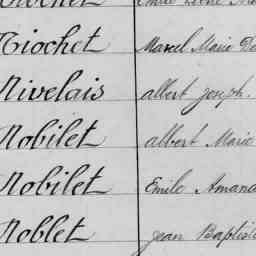 Niochet Marcel Marie
Nivelais albert Joseph.
Nobilet albert Marie
Nobilet Emile Amand
Noblet Jean Baptiste